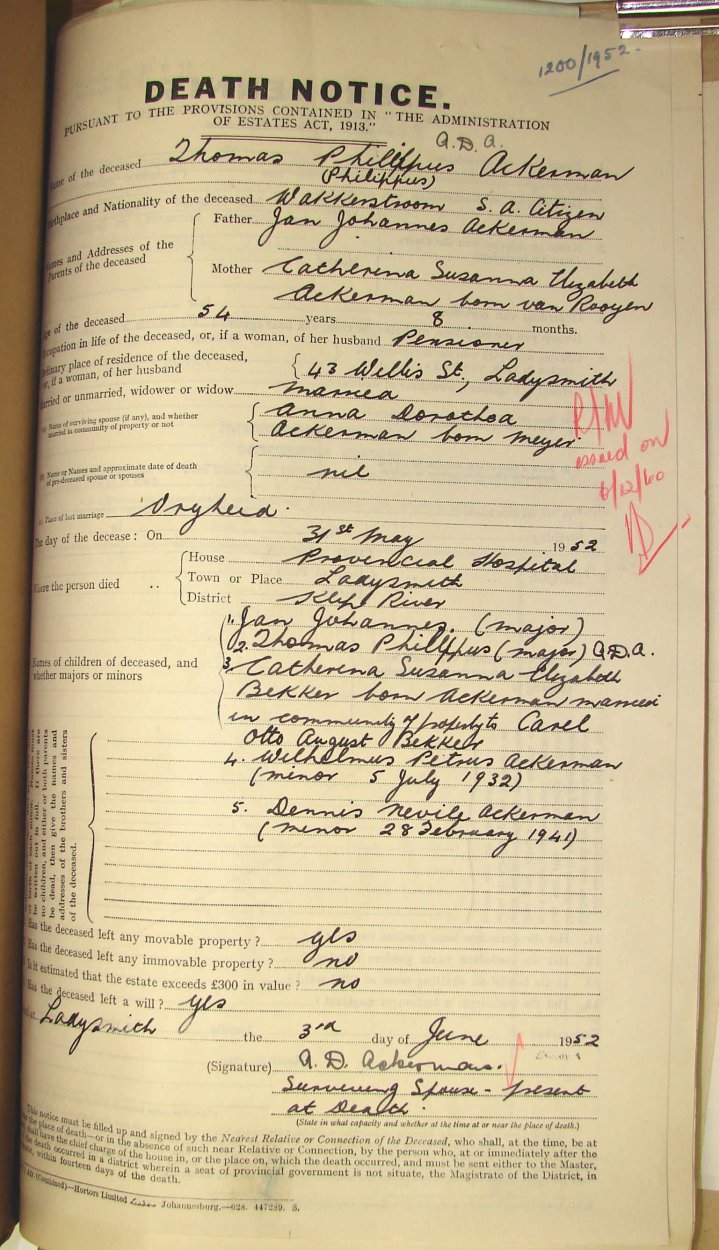 1200/1952.
DEATH NOTICE.
PURSUANT TO THE PROVISIONS CONTAINED IN "THE ADMINISTRATION
OF ESTATES ACT, 1913."
A.D.A.
Name of the deceased Thomas Phillippus Ackerman
(Philippus)
Birthplace and Nationality of the deceased Wakkerstroom S.A. Citizen
Names and Addresses of the
Parents of the deceased
Father Jan Johannes Ackerman
Mother Catherina Susanna Elizabeth
Ackerman born van Rooyen
Age of the deceased 54 years 8 months.
Occupation in life of the deceased, or, if a woman, of her husband Pensioner
Ordinary place of residence of the deceased,
or, if a woman, of her husband
43 Willis St, Ladysmith
Married or unmarried, widower or widow married
Name of surviving spouse (if any), and whether
married in community of property or not
Anna Dorothea
Ackerman born Meyer
issued on
6/12/60
Name or Names and approximate date of death
of pre-deceased spouse or spouses
nil
Place of last marriage Vryheid.
The day of the decease: On 31st May 1952
Where the person died ..
House Provincial Hospital
Town or Place Ladysmith
District Klip River
Names of children of deceased, and
whether majors or minors
1. Jan Johannes. (major)
2. Thomas Phillippus (major) A.D.A.
3. Catherina Susanna Elizabeth
Bekker born Ackerman married
in community of property to Carel
Otto August Bekker
4. Wilhelmus Petrus Ackerman
(minor 5 July 1932)
5. Dennis Nevile Ackerman
(minor 28 February 1941)
be written out in full. If there are
no children, and either or both parents
be dead, then give the names and
addresses of the brothers and sisters
of the deceased.
Has the deceased left any movable property? yes
Has the deceased left any immovable property? no
Is it estimated that the estate exceeds £300 in value? no
Has the deceased left a will? yes
at Ladysmith the 3rd day of June 1952
(Signature) A. D. Ackerman.
Surviving Spouse - present
at Death.
(State in what capacity and whether at the time at or near the place of death.)
This notice must be filled up and signed by the Nearest Relative or Connection of the Deceased, who shall, at the time, be at
the place of death—or in the absence of such near Relative or Connection, by the person who, at or immediately after the
shall have the chief charge of the house in, or the place on, which the death occurred, and must be sent either to the Master,
the death occurred in a district wherein a seat of provincial government is not situate, the Magistrate of the District, in
within fourteen days of the death.
(Combined)—Hortors Limited Johannesburg.—628. 447289. S.